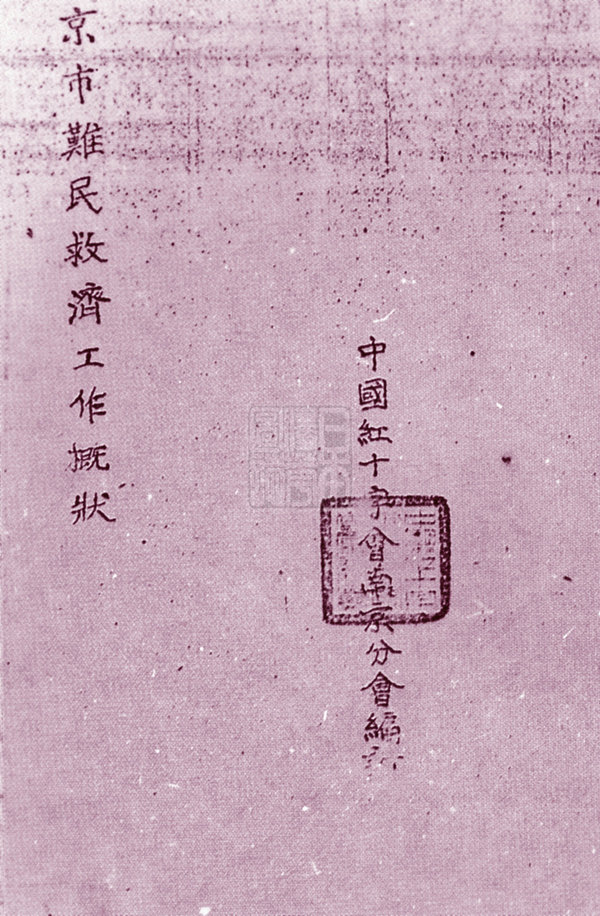 京市難民救濟工作概狀
中國紅十字會南京分會編